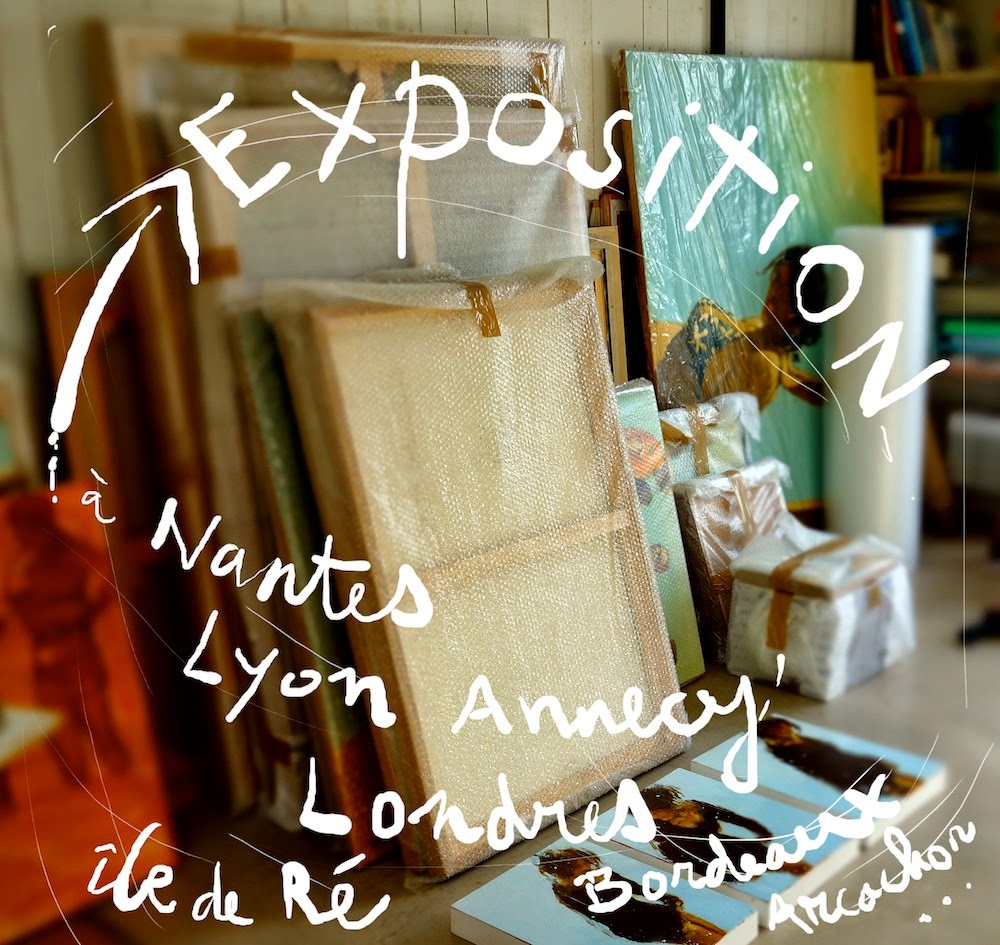 Exposition
à
Nantes
Lyon Annecy
Londres
île de Ré
Bordeaux
Arcachon...